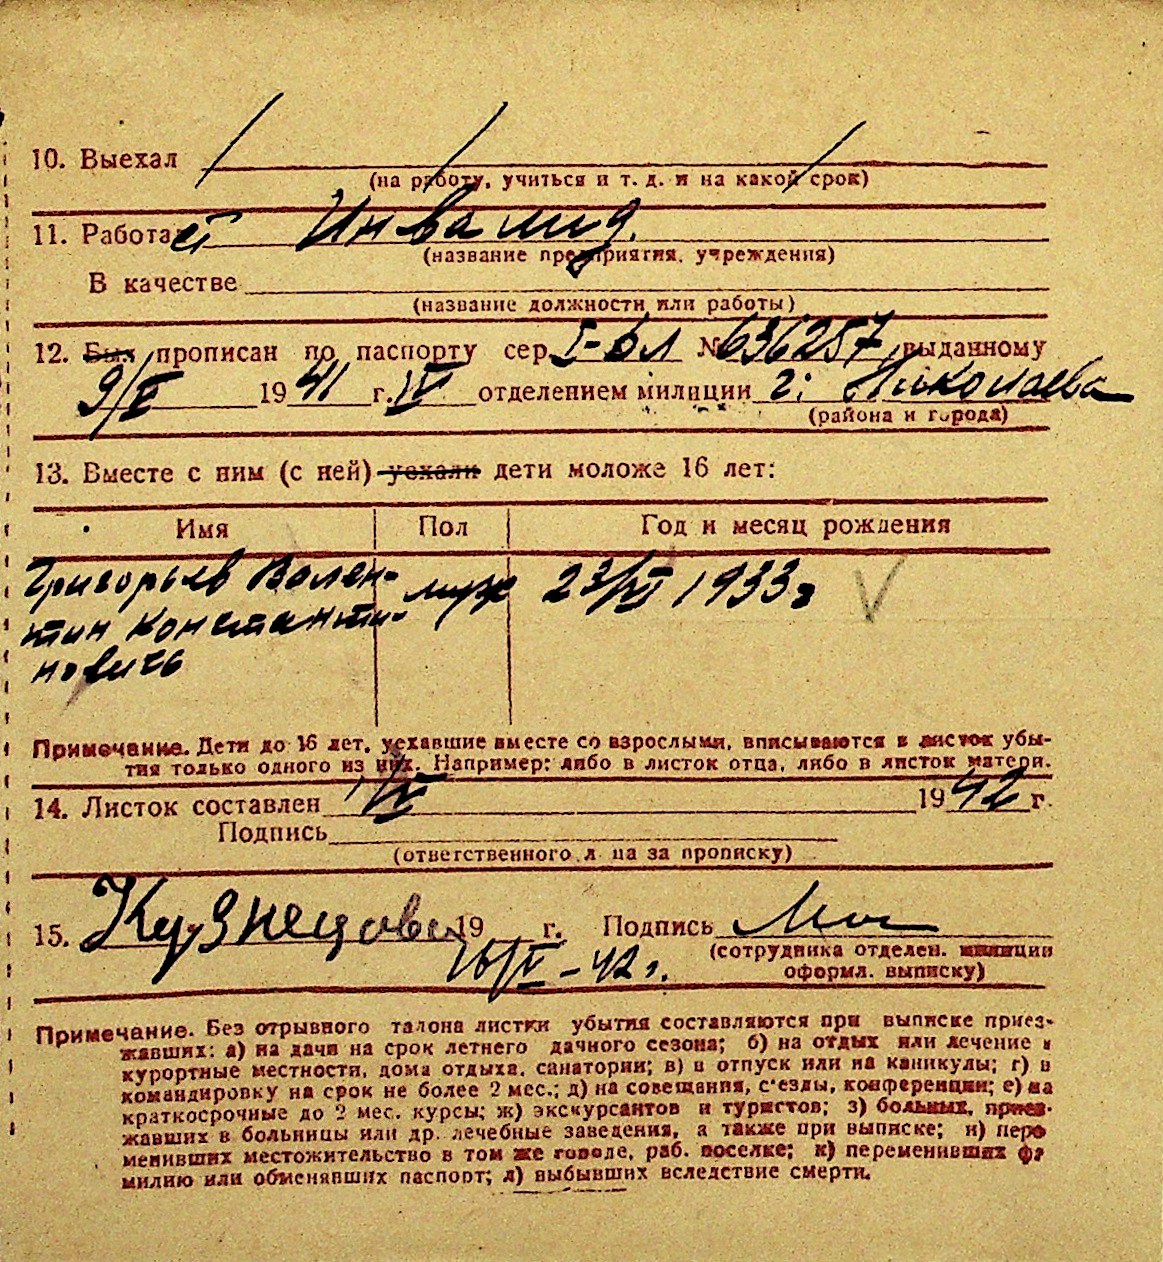 10. Выехал
(на работу, учиться и т. д. и на какой срок)
11. Работает Инвалид.
(название предприятия, учреждения)
В качестве
(название должности или работы)
12. Был прописан по паспорту сер. I-БЛ № 636257 выданному
9/V 1941 г. IV отделением милиции г. Николаева
(района и города)
13. Вместе с ним (с ней) уехали дети моложе 16 лет:
Имя Пол Год и месяц рождения
Григорьев Вален- муж 23/VI 1933 г
тин Константи-
новичь
Примечание. Дети до 16 лет, уехавшие вместе со взрослыми, вписываются в листок убы-
тия только одного из них. Например: либо в листок отца, либо в листок матери.
14. Листок составлен 1942 г.
Подпись
(ответственного л ца за прописку)
15. Кузнецова 19 г. Подпись
16/IV-42 г. (сотрудника отделен. милиции
оформл. выписку)
Примечание. Без отрывного талона листки убытия составляются при выписке приез-
жавших: а) на дачи на срок летнего дачного сезона; б) на отдых или лечение в
курортные местности, дома отдыха, санатории; в) в отпуск или на каникулы; г) в
командировку на срок не более 2 мес.; д) на совещания, с'езды, конференции; е) на
краткосрочные до 2 мес. курсы; ж) экскурсантов и туристов; з) больных, приез-
жавших в больницы или др. лечебные заведения, а также при выписке; и) пере
менивших местожительство в том же городе, раб. поселке; к) переменивших фа
милию или обменявших паспорт; л) выбывших вследствие смерти.